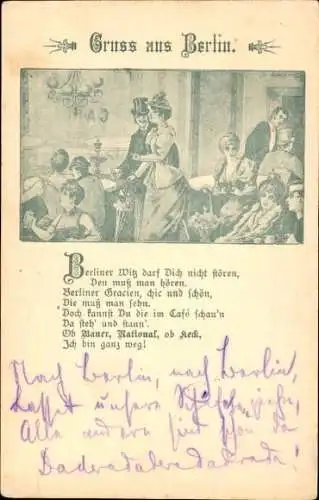 Gruss aus Berlin.
CAFÉ
Berliner Witz darf Dich nicht stören,
Den muß man hören.
Berliner Gracien, chic und schön,
Die muß man sehn.
Doch kannst Du die im Café schau'n
Da steh' und staun'.
Ob Bauer, National, ob Keck,
Ich bin ganz weg!
Nach Berlin, nach Berlin,
Lasst unsere
Alle andern sind schon da